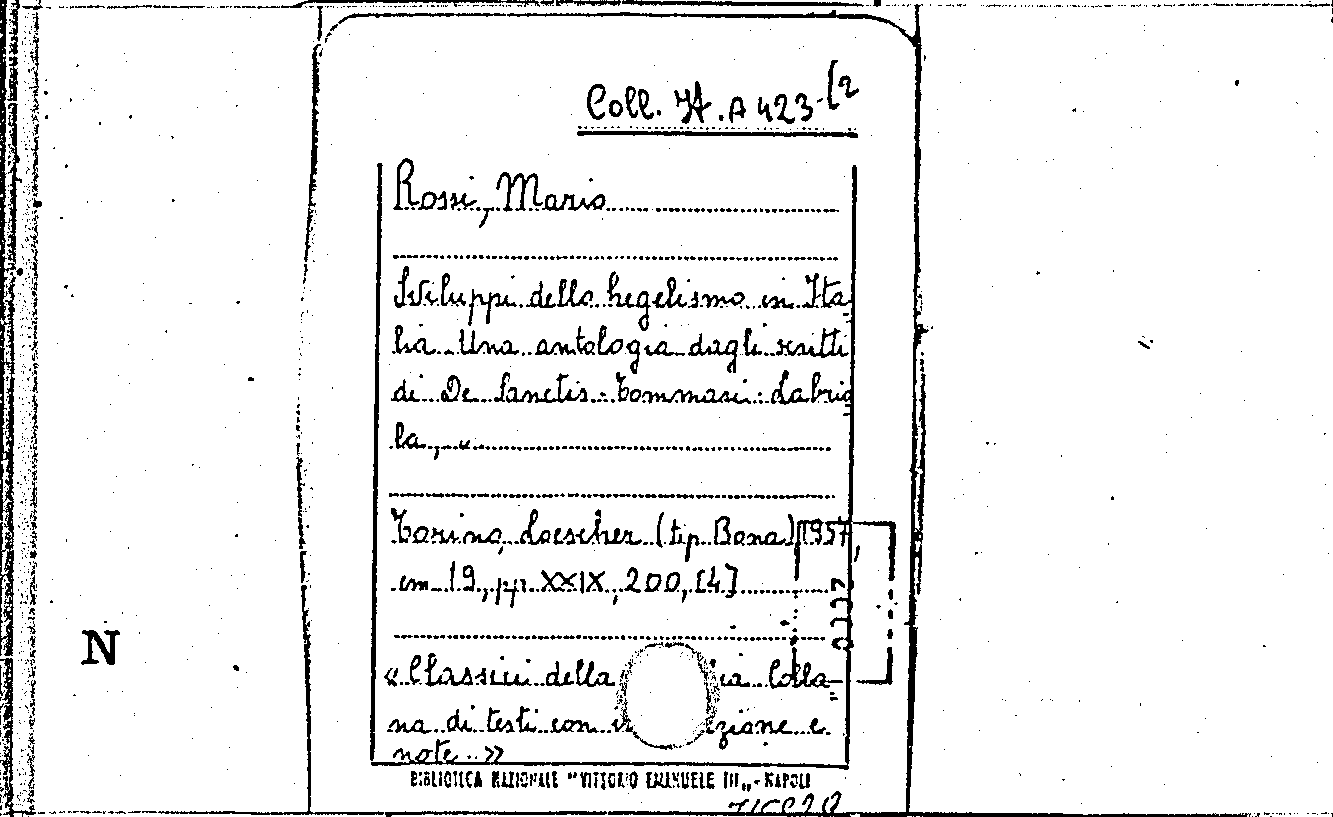 Coll. It. A 423-(2
Rossi, Mario
Sviluppi dello hegelismo in Ita=
lia. Una antologia dagli scritti
di De Sanctis. Tommasi. Labrio=
la, ..
Torino, Loescher (tip. Bona) 1957,
cm 19, pp. XXIX, 200, [4]
« Classici della ia Colla=
na di testi con zione e
N
note. »
BIBLIOTECA NAZIONALE "VITTORIO EMANUELE III„ - NAPOLI